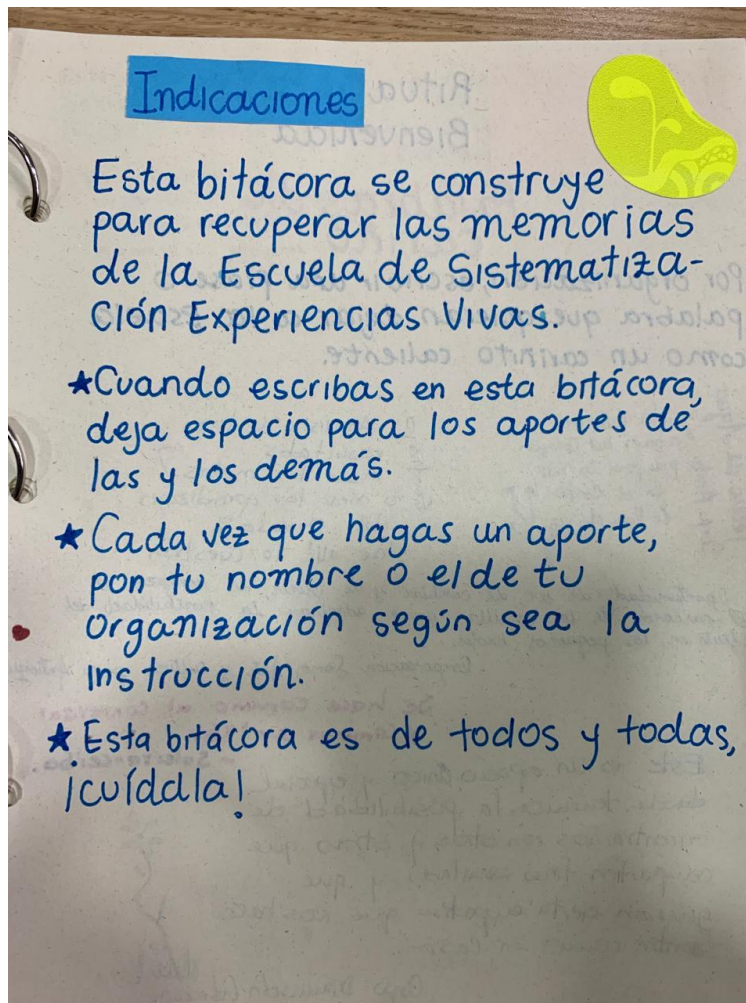 Indicaciones
Esta bitácora se construye
para recuperar las memorias
de la Escuela de Sistematiza-
ción Experiencias Vivas.
★Cuando escribas en esta bitácora,
deja espacio para los aportes de
las y los demás.
★Cada vez que hagas un aporte,
pon tu nombre o el de tu
organización según sea la
instrucción.
★Esta bitácora es de todos y todas,
¡cuídala!